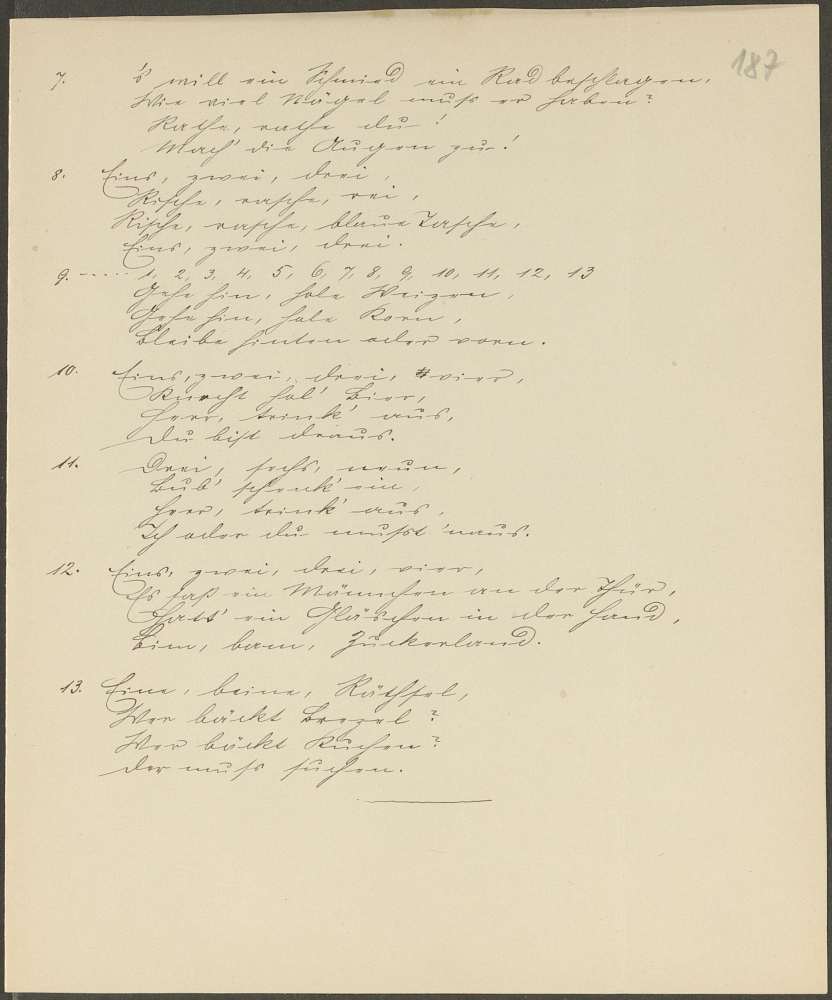 187
7. 's will ein Schmied ein Rad beschlagen,
Wie viel Nägel muß er haben?
Rathe, rathe du!
Mach' die Augen zu!
8. Eins, zwei, drei,
Rische, rasche, rei,
Rische, rasche, blaue Tasche,
Eins, zwei, drei.
9. 1, 2, 3, 4, 5, 6, 7, 8, 9, 10, 11, 12, 13
Gehe hin, hole Weizen,
Gehe hin, hole Korn,
Bleibe hinten oder vorn.
10. Eins, zwei, drei, vier,
Knecht hol' Bier,
Herr, trink' aus,
Du bist draus.
11. Drei, sechs, neun,
Bub' schenk' ein,
Herr, trink' aus,
Ich oder du mußt 'naus.
12. Eins, zwei, drei, vier,
Es saß ein Männchen an der Thür,
Hatt' ein Gläschen in der Hand,
Bim, bam, Zuckerland.
13. Eine, beine, Räthsel,
Wer bäckt Brezel?
Wer bäckt Kuchen?
Der muß suchen.